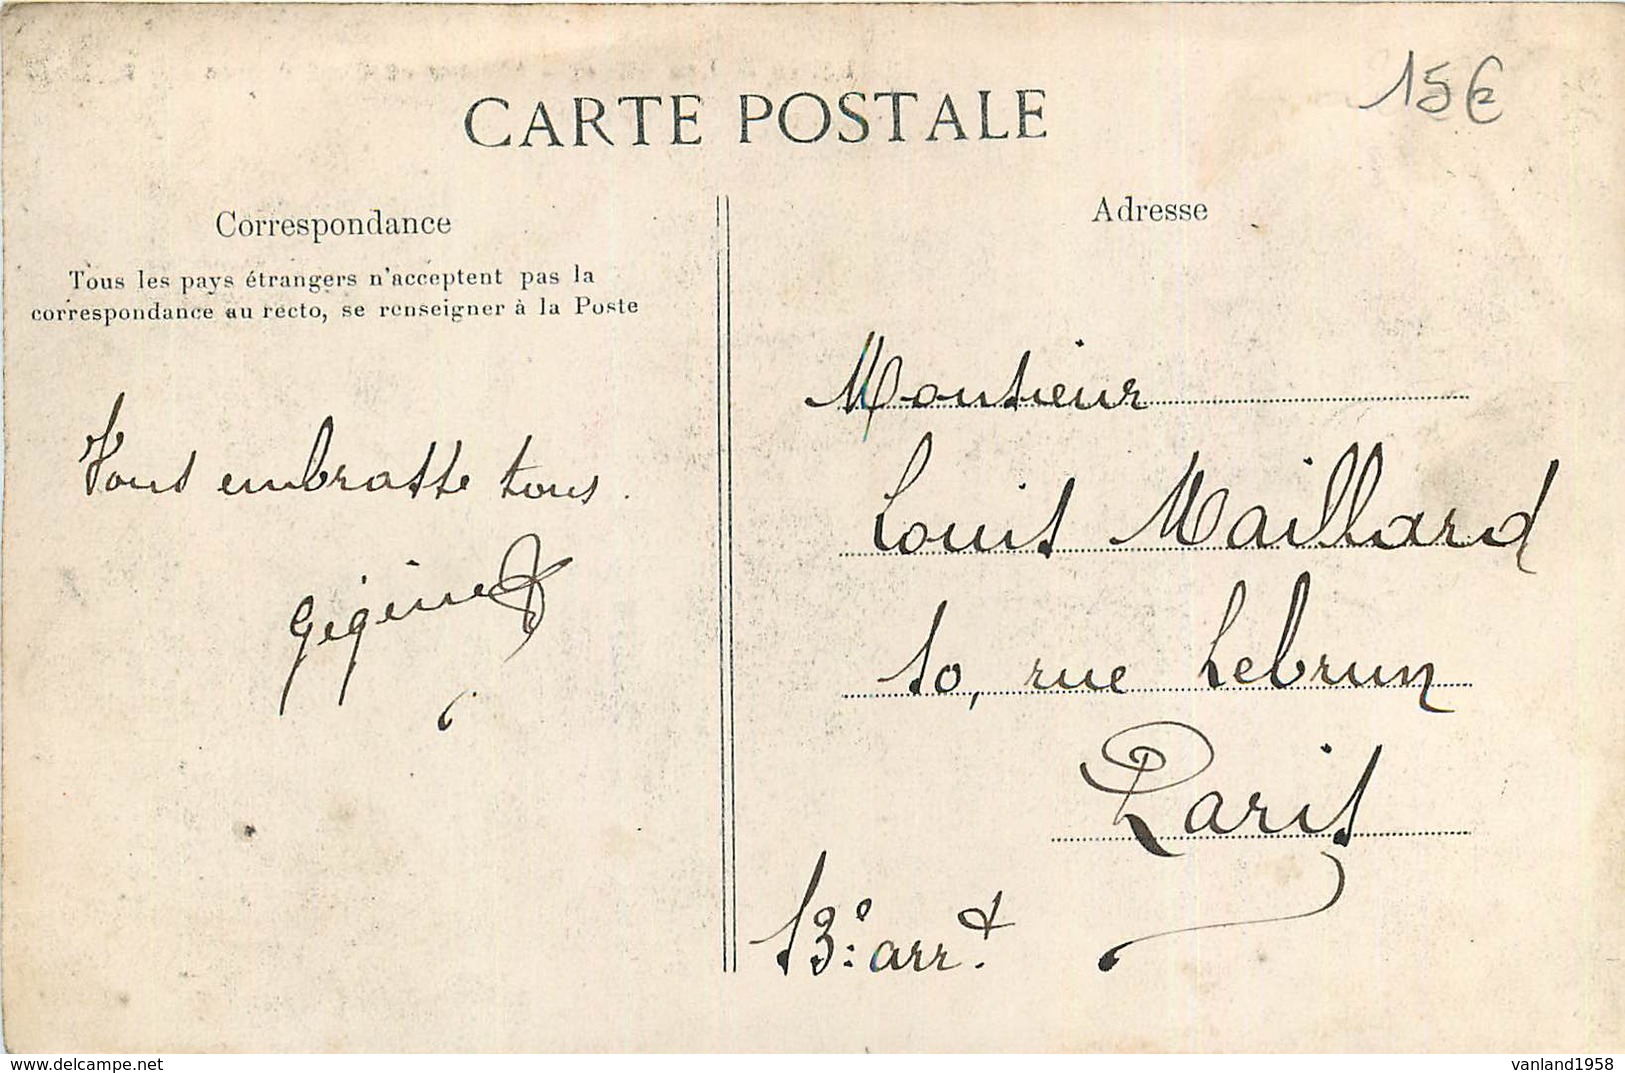 15€
CARTE POSTALE
Correspondance
Tous les pays étrangers n'acceptent pas la
correspondance au recto, se renseigner à la Poste
Vous embrasse tous.
Gégène
Adresse
Monsieur
Louis Maillard
10, rue Lebrun
Paris
13e arrt.
vanland1958